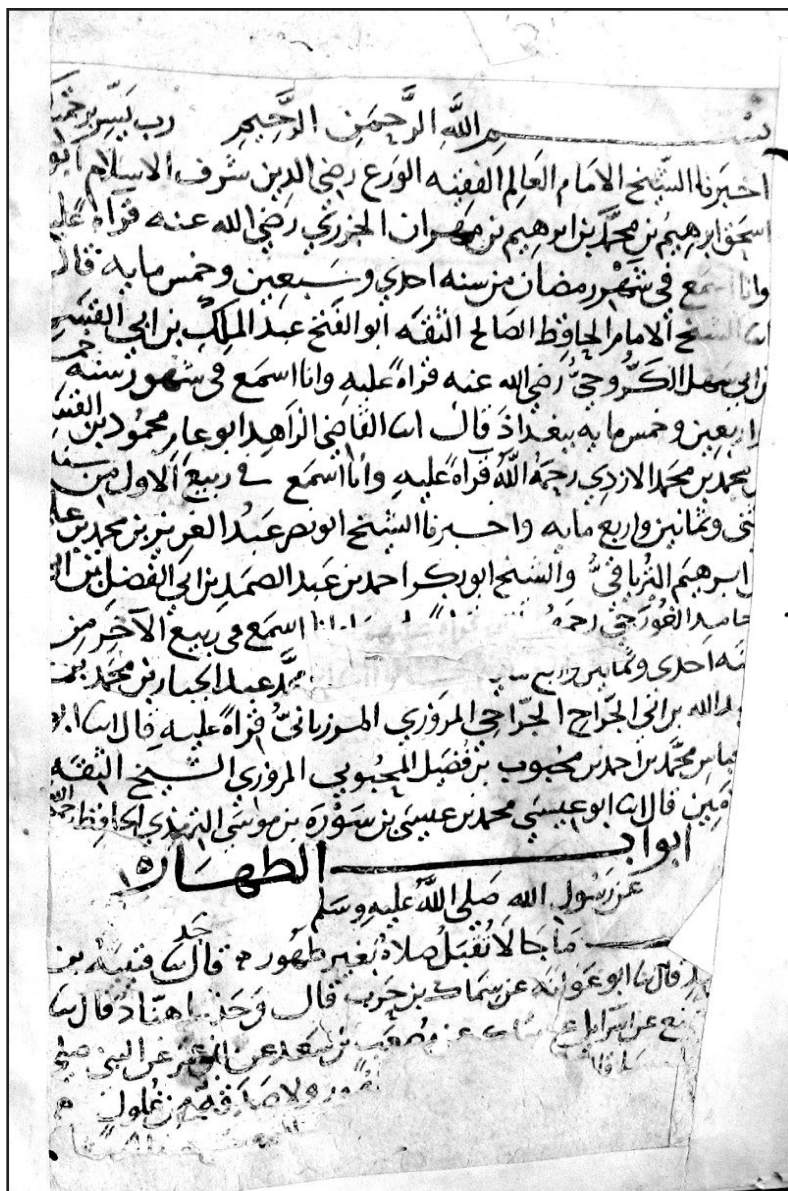 بسم الله الرحمن الرحيم رب يسر برحمتك
اخبرنا الشيخ الامام العالم الفقيه الورع رضي الدين شرف الاسلام ابو
اسحق ابرهيم بن محمد بن ابرهيم بن مهران الجزري رضي الله عنه قراة عليه
وانا اسمع في شهر رمضان من سنه احدي وسبعين وخمس مايه قال
انا الشيخ الامام الحافظ الصالح الثقه ابو الفتح عبد الملك بن ابي القسم
بن ابي سهل الكروخي رضي الله عنه قراة عليه وانا اسمع في شهور سنه
اربعين وخمس مايه ببغداد قال انا القاضي الزاهد ابو عامر محمود بن القسم
بن محمد بن محمد الازدي رحمه الله قراة عليه وانا اسمع في ربيع الاول من سنه
ثنتي وثمانين واربع مايه واخبرنا الشيخ ابو نصر عبد العزيز بن محمد بن علي
بن ابرهيم الترياقي والشيخ ابو بكر احمد بن عبد الصمد بن ابي الفضل بن ابي
حامد الغورجي رحمه قراة وانا اسمع في ربيع الآخر من
سنه احدى وثمانين واربع عبد الجبار بن محمد بن
عبد الله بن ابي الجراح الجراحي المروزي المرزباني قراة عليه قال انا ابو
العباس محمد بن احمد بن محبوب بن فضيل المحبوبي المروزي الشيخ الثقه
الامين قال انا ابو عيسي محمد بن عيسي بن سورة بن موسى الترمذي الحافظ رحمه الله
ابواب الطهارة
عن رسول الله صلى الله عليه وسلم
ما جا لا تقبل صلاة بغير طهور قال حدثنا قتيبه بن
سعيد قال ثنا ابو عوانه عن سماك بن حرب قال وحدثنا هناد قال ثنا
وكيع عن اسرايل عن سماك عن مصعب بن سعد عن ابن عمر عن النبي صلى
وسلم قال
طهور ولا صدقة من غلول